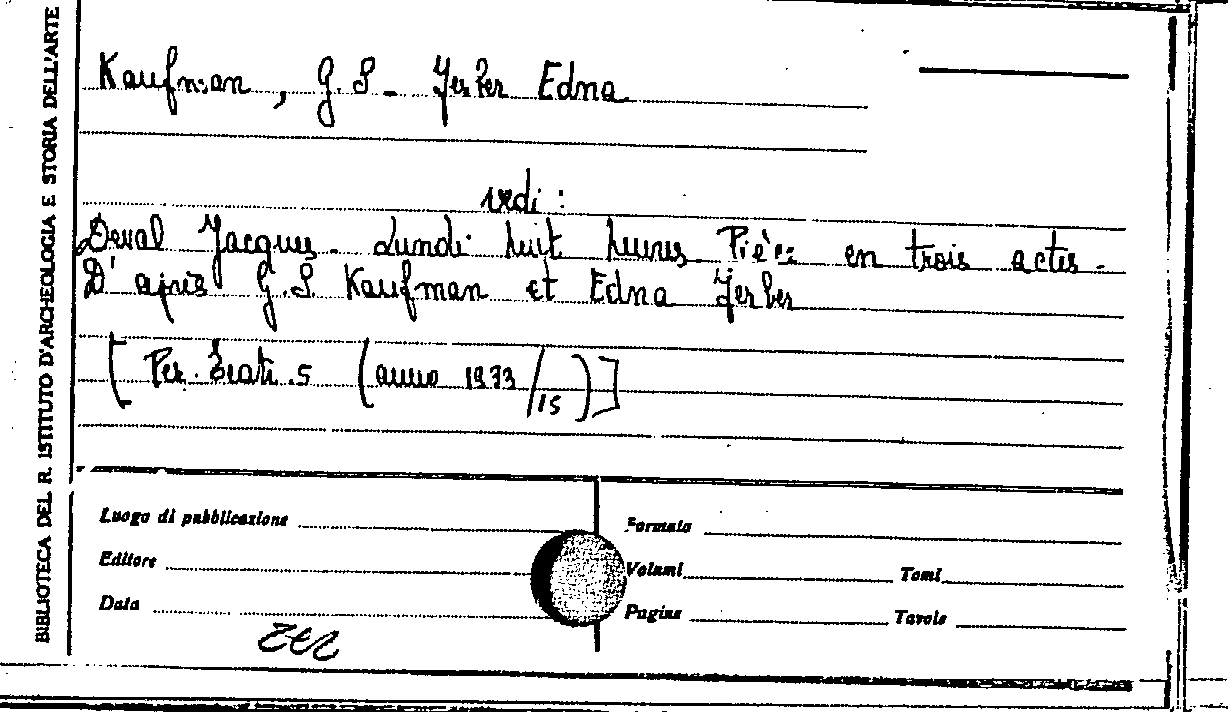 BIBLIOTECA DEL R. ISTITUTO D'ARCHEOLOGIA E STORIA DELL'ARTE
Kaufman, G. S - Ferber Edna
vedi :
Deval Jacques - Lundi huit heures. Pièce en trois actes.
D'après G.S. Kaufman et Edna Ferber
[Per. (anno 1973/15)]
Luogo di pubblicazione
Formato
Editore
Volumi Tomi
Data
Pagine Tavole